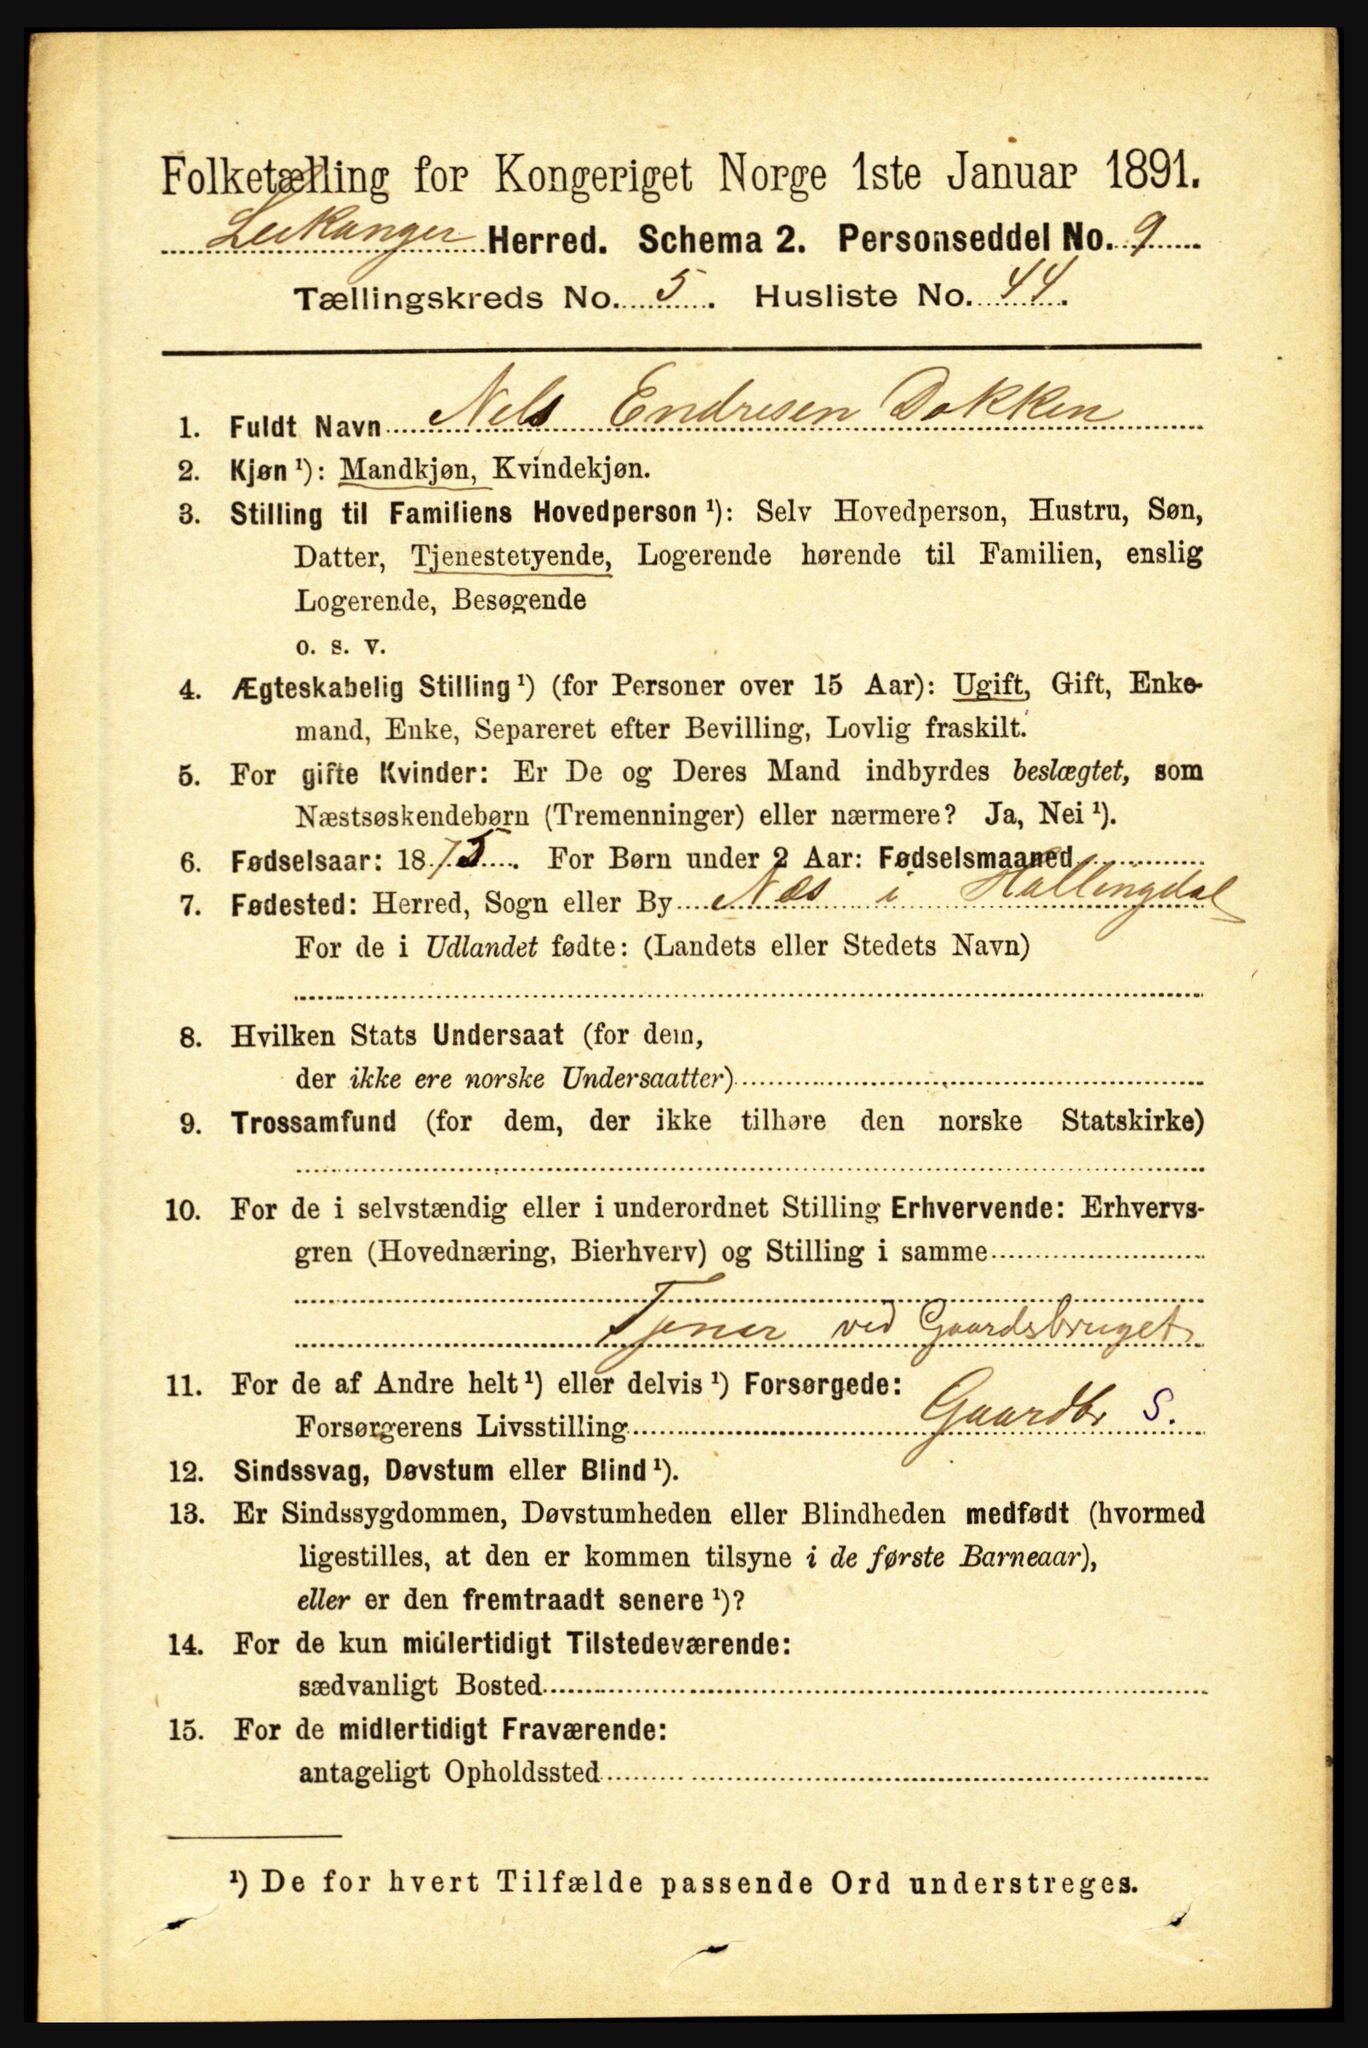 Folketælling for Kongeriget Norge 1ste Januar 1891.
Leikanger Herred. Schema 2. Personseddel No. 9
Tællingskreds No. 5. Husliste No. 44.
1. Fuldt Navn Nels Endresen Dokken
2. Kjøn ¹): Mandkjøn, Kvindekjøn.
3. Stilling til Familiens Hovedperson ¹): Selv Hovedperson, Hustru, Søn,
Datter, Tjenestetyende, Logerende hørende til Familien, enslig
Logerende, Besøgende
o. s. v.
4. Ægteskabelig Stilling ¹) (for Personer over 15 Aar): Ugift, Gift, Enke-
mand, Enke, Separeret efter Bevilling, Lovlig fraskilt.
5. For gifte Kvinder: Er De og Deres Mand indbyrdes beslægtet, som
Næstsøskendebørn (Tremenninger) eller nærmere? Ja, Nei ¹).
6. Fødselsaar: 1875. For Børn under 2 Aar: Fødselsmaaned
7. Fødested: Herred, Sogn eller By Næs i Hallingdal
For de i Udlandet fødte: (Landets eller Stedets Navn)
8. Hvilken Stats Undersaat (for dem,
der ikke ere norske Undersaatter)
9. Trossamfund (for dem, der ikke tilhøre den norske Statskirke)
10. For de i selvstændig eller i underordnet Stilling Erhvervende: Erhvervs-
gren (Hovednæring, Bierhverv) og Stilling i samme
Tjener ved Gaardsbruget
11. For de af Andre helt ¹) eller delvis ¹) Forsørgede:
Forsørgerens Livsstilling Gaardbr S.
12. Sindssvag, Døvstum eller Blind ¹).
13. Er Sindssygdommen, Døvstumheden eller Blindheden medfødt (hvormed
ligestilles, at den er kommen tilsyne i de første Barneaar),
eller er den fremtraadt senere ¹)?
14. For de kun midlertidigt Tilstedeværende:
sædvanligt Bosted
15. For de midlertidigt Fraværende:
antageligt Opholdssted
¹) De for hvert Tilfælde passende Ord understreges.